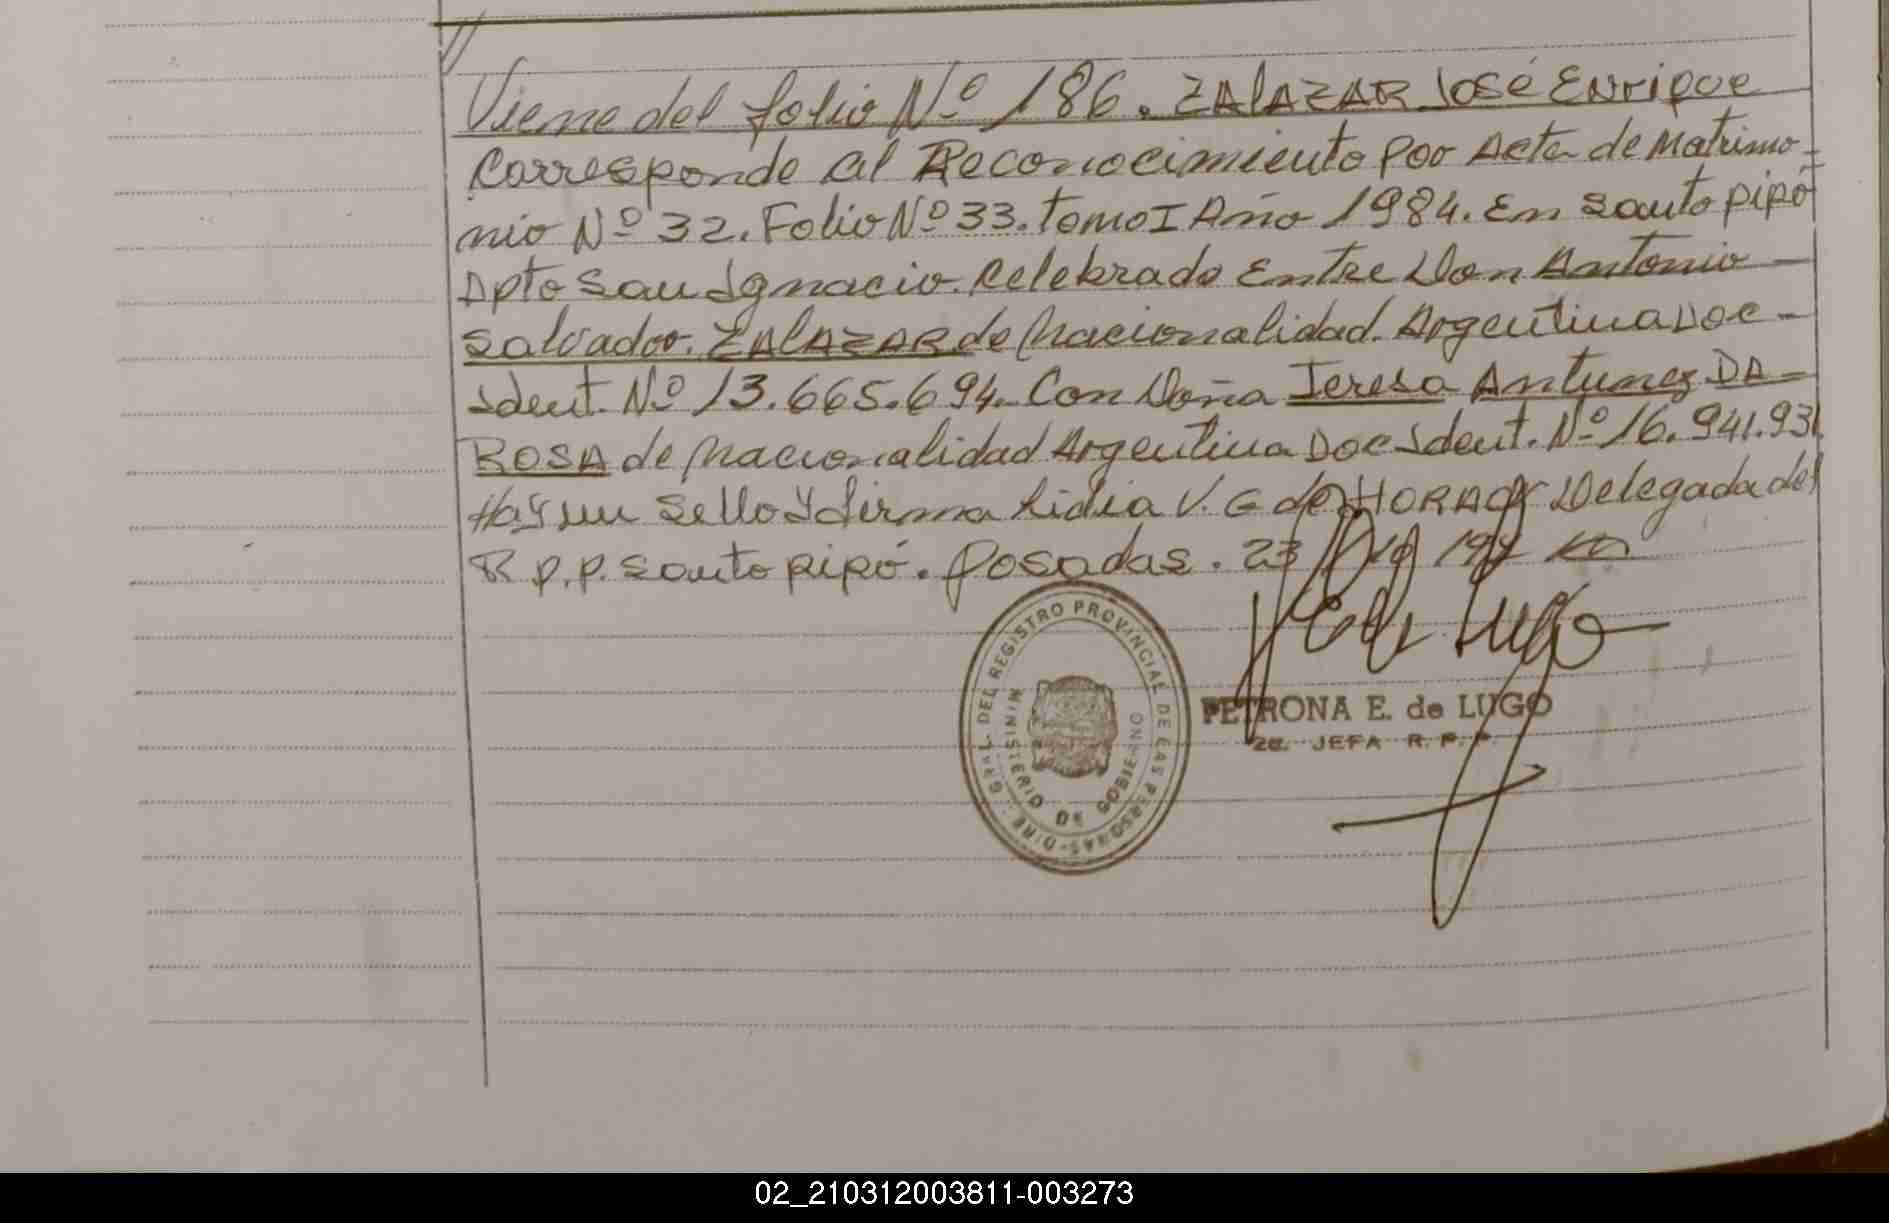 Viene del folio Nº 186. ZAlAZAR José Enrique
Corresponde al Reconocimiento por Acta de Matrimo-
nio Nº 32. Folio Nº 33. tomo I Año 1984. En Santo pipó
Dpto San Ignacio. Celebrado Entre Don Antonio
Salvador. ZAlAZAR de Nacionalidad. Argentina Doc-
Ident. Nº 13.665.694. Con Doña Teresa Antunez DA-
ROSA de Nacionalidad Argentina Doc Ident. Nº 16.941.931
Hay un Sello Y firma Lidia V. G de Delegada del
R.P.P. Santo pipó. Posadas. 23
PETRONA E. de LUGO
2a. JEFA R. P. P.
DIRE. GRAL. DEL REGISTRO PROVINCIAL DE LAS PERSONAS-
MINISTERIO DE GOBIERNO
02_210312003811-003273